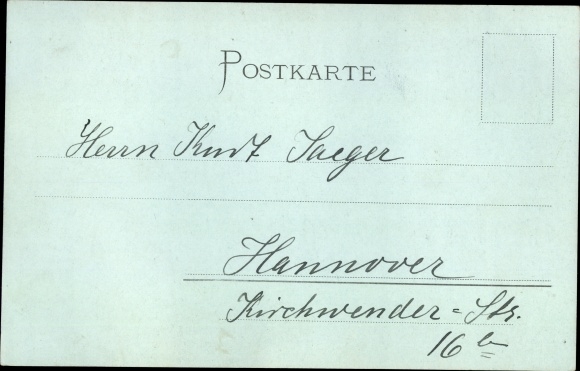 POSTKARTE
Herrn Kurt Jaeger
Hannover
Kirchwender=Str.
16 b